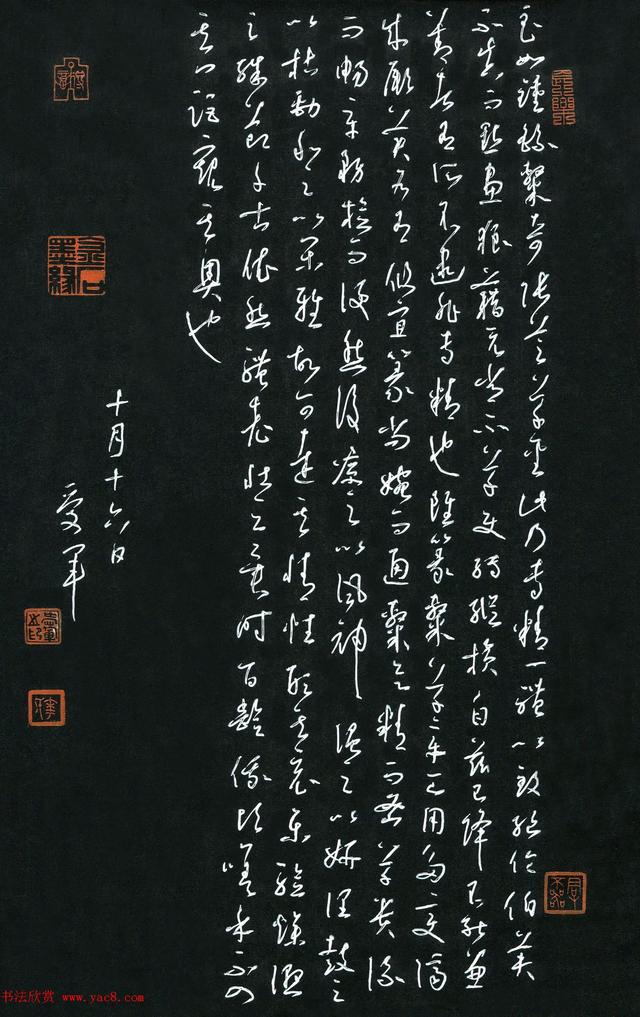 至如鍾繇隸奇張芝草聖此乃專精一體以致絕倫伯英
不真而點畫狼藉元常不草使轉縱橫自茲已降不能兼
善者有所不逮非專精也雖篆隸草章工用多變濟
成厥美各有攸宜篆尚婉而通隸欲精而密草貴流
而暢章務檢而便然後凜之以風神溫之以妍潤鼓之
以枯勁和之以閑雅故可達其情性形其哀樂驗燥濕
之殊節千古依然體老壯之異時百齡俄頃嗟乎不入
其門詎窺其奧也
十月十六日
愛軍
金石墨緣
书法欣赏 www.yac8.com